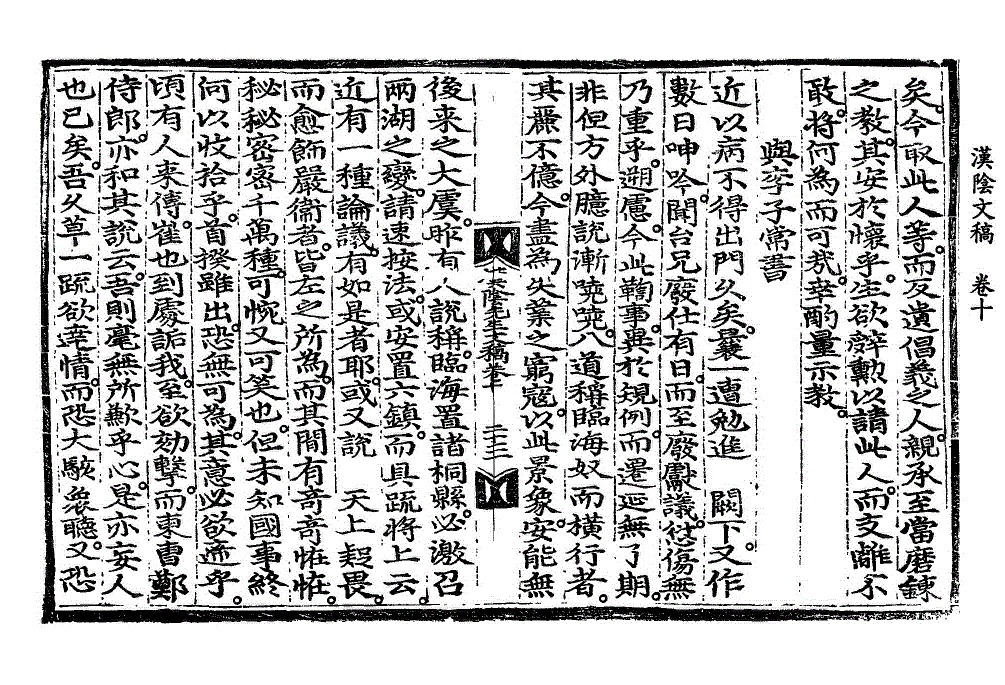 漢陰文稿　卷十
矣。今取此人等。而反遺倡義之人。親承至當磨鍊
之教。其安於懷乎。生欲辭勳以請此人。而支離不
敢。將何為而可哉。幸酌量示教。
與李子常書
近以病不得出門久矣。曩一遭勉進　闕下。又作
數日呻吟。聞台兄廢仕有日。而至廢獻議。愆傷無
乃重乎。遡慮。今此鞫事。異於規例。而遷延無了期。
非但方外臆說漸嘵嘵。八道稱臨海奴而橫行者。
其麗不億。今盡為失業之窮寇。以此景象。安能無
漢陰先生文稿卷十　二十三
後來之大虞。昨有人說稱。臨海置諸桐縣。必激召
兩湖之變。請速按法。或安置六鎮。而具疏將上云。
近有一種論議。有如是者耶。或又說　天上疑畏。
而愈飾嚴衞者。皆左之所為。而其間有奇奇恠恠。
秘秘密密千萬種。可惋又可笑也。但未知國事終
何以收拾乎。首揆雖出。恐無可為。其意必欲遞乎。
頃有人來傳。崔也到處詬我。至欲劾擊。而東曹鄭
侍郎。亦和其說云。吾則毫無所歉乎心。是亦妄人
也已矣。吾久草一疏欲幸情。而恐大駭衆聽。又恐